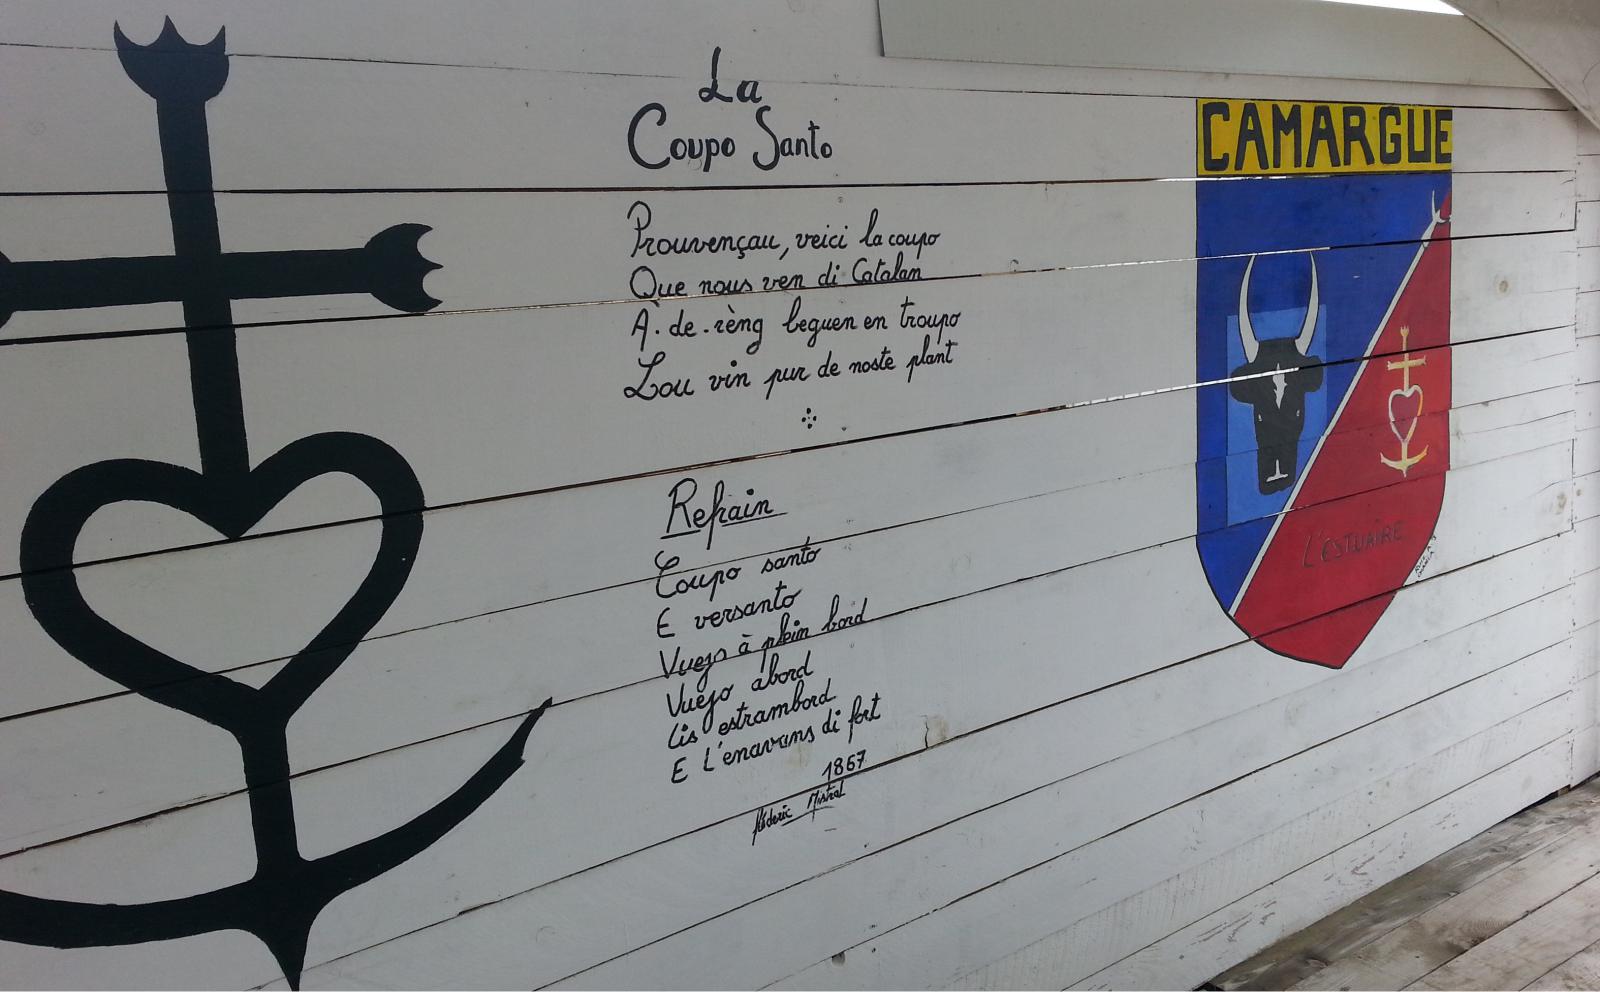 La
Coupo Santo
Prouvençau, veici la coupo
Que nous ven di Catalan
À-de-rèng beguen en troupo
Lou vin pur de noste plant
Refrain
Coupo santo
E versanto
Vuejo à plein bord
Vuejo abord
Lis estrambord
E L'enavans di fort
1867
Fréderic Mistral
CAMARGUE
L'ESTUAIRE